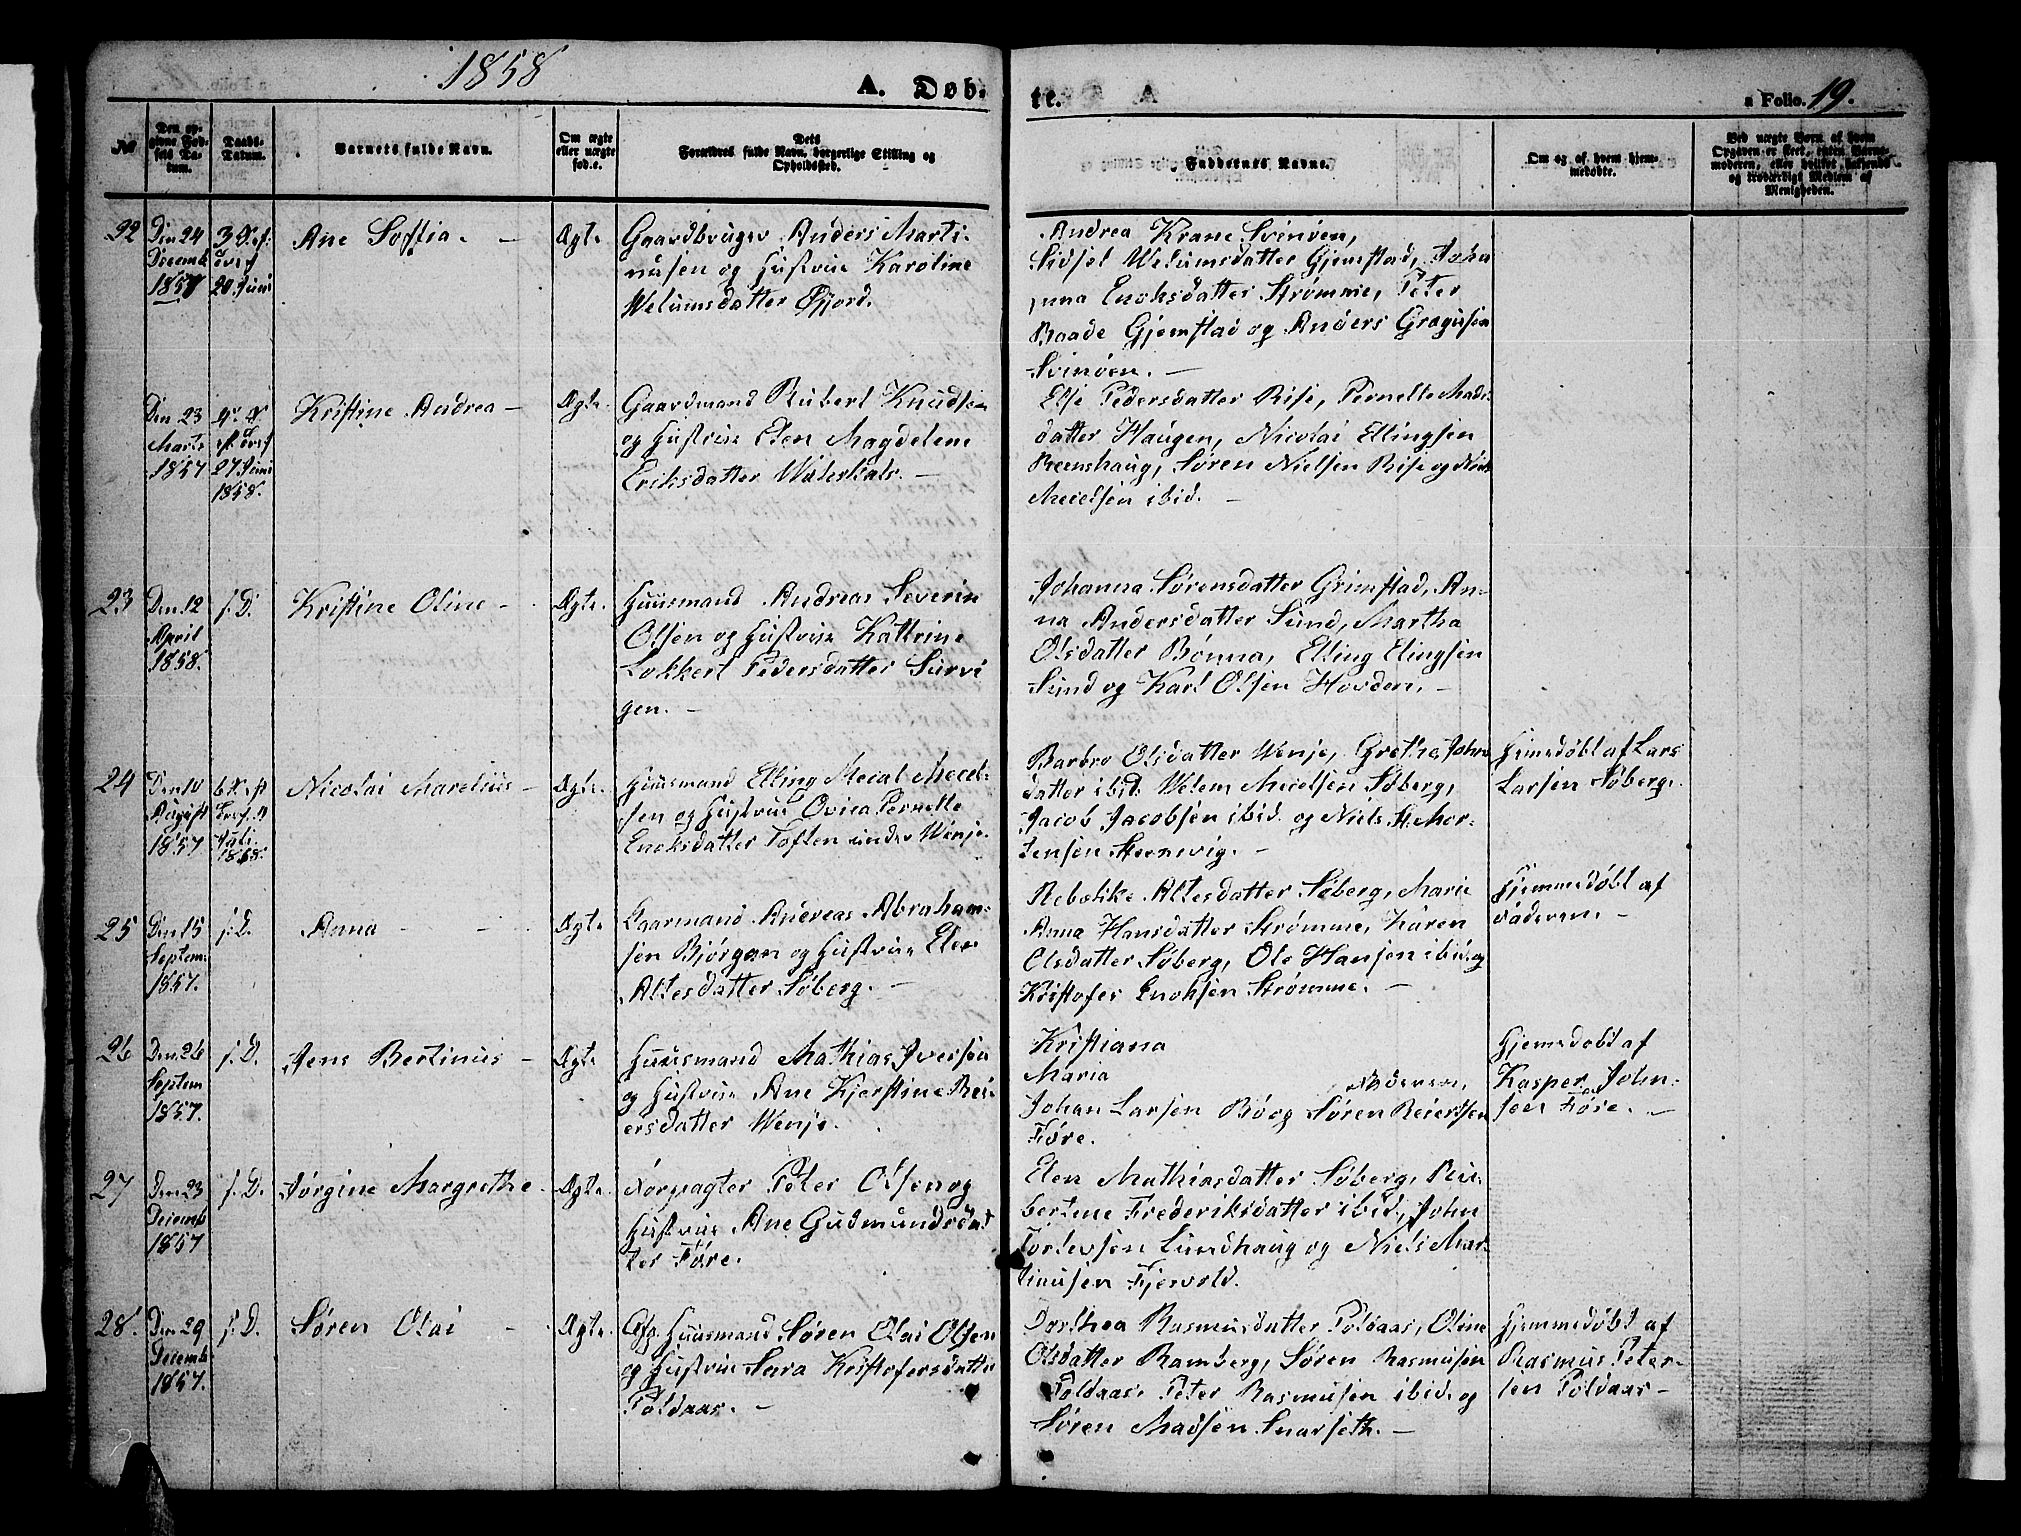 1858
A. Døb-
te.
a Folio. 19.
No
Den op-
givne Fød-
sels Da-
tum.
Daabs-
Datum.
Barnets fulde Navn.
Om ægte
eller uægte
fød.e.
Dets
Forældres fulde Navn, borgerlige Stilling og
Opholdssted.
Faddernes Navne.
Om og af hvem hjem-
medøbte.
Ved uægte Børn af hvem
Opgaven er skeet, enten Barne-
moderen, eller hvilket
og troværdigt Medlem af
Menigheden.
22
Den 24
Decemb
1857
3 S. ef:
Tref
20 Juni
Ane Soffia. -
Ægte
Gaardbruger Anders Marti-
nusen og Hustrue Karoline
Welumsdatter Øfjord.
Andrea Krane Svinøen,
Sidsel Welumsdatter Gjemstad, Joha
nna Enoksdatter Strømme, Peter
Baade Gjemstad og Anders Gregusen
Svinøen. -
Den 23
Marts
1857
4de S
ef. Tref
27 Juni
1858.
Kristine Andrea -
Ægte
Gaardmand Rubert Knudsen
og Hustrue Elen Magdelene
Eriksdatter Waterkals. -
Else Pedersdatter Rise, Pernelle Mads
datter Haugen, Nicolai Ellingsen
Reenshaug, Søren Nielsen Rise og
Meielsen ibid. -
23
Den 12
April
1858.
s. D.
Kristine Oline -
Ægte.
Huusmand Andreas Severin
Olsen og Hustrue Kattrine
Lokkert Pedersdatter Survi
gen. -
Johanna Sørensdatter Grimstad, An-
na Andersdatter Sund, Martha
Olsdatter Bønna, Elling Elingsen
Sund og Karl Olsen Hovden. -
24
Den 10
August
1857
6te S. ef
Tref. D
Juli
1858.
Nicolai Marelius -
Ægte.
Huusmand Elling Meial Meiel-
sen og Hustrue Ovica Pernelle
Enoksdatter Toften under Wenje.
Barbro Olsdatter Wenje, Grethe Johns
datter ibid. Welem Meielsen Søberg,
Jacob Jacobsen ibid. og Niels St. Mor-
tensen Steenvig. -
Hjemedøbt af Lars
Larsen Søberg.
25
Den 15
Septem:
1857.
s. D.
Anna - -
Ægte
Gaarmand Andreas Abraham-
sen Bjørgan og Hustrue Elen
Altesdatter Søberg. -
Rebække Altesdatter Søberg, Marie
Anna Hansdatter Strømme, Karen
Olsdatter Søberg, Ole Hansen ibid. og
Kristofer Enoksen Strømme. -
Hjemmedøbt af
Faderen. -
26
Den 26
Septem
1857.
s. D.
Jens Bertinus -
Ægte
Huusmand Mathias Iversen
og Hustrue Ane Kjerstine Rei-
ersdatter Wenje.
Kristiana
Maria
Johan Larsen Bø og Søren Reiersen
Føre.
Hjemedøbt af
Kasper John-
sen Føre. -
27
Den 23
Decemb
1857
s. D.
Jørgine Margrethe.
Ægte
Forpagter Peter Olsen og
Hustrue Ane Gudmundsdat
ter Føre.
Elen Mathiasdatter Søberg, Ru-
bertine Frederiksdatter ibid., John
Torlevsen Lundhaug og Niels Mar
tinusen Fjervold.
28.
Den 29
Decemb
1857.
s. D.
Søren Olai -
Ægte.
Afg. Huusmand Søren Olai Olsen
og Hustrue Sara Kristofersdatter
Poldaas. -
Dorthea Rasmusdatter Poldaas, Oline
Olsdatter Ramberg, Søren Rasmusen
Poldaas. Peter Rasmusen ibid. og
Søren Madsen Snarseth. -
Hjemmedøbt af
Rasmus Peter-
sen Poldaas -